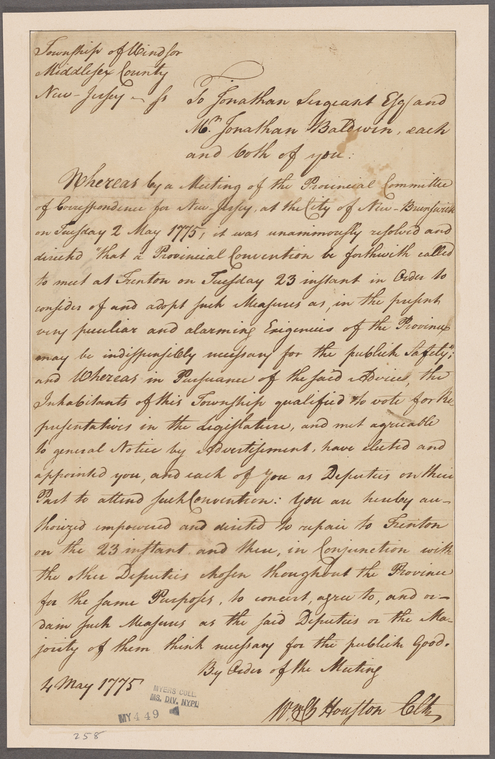 Township of Windsor
Middlesex County
New-Jersey — ss
To Jonathan Sergeant Esqr and
Mr Jonathan Baldwin, each
and both of you:
Whereas by a Meeting of the Provincial Committee
of Correspondence for New-Jersey, at the City of New-Brunswick
on Tuesday 2 May 1775, it was unanimously resolved and
directed that a Provincial Convention be forthwith called
to meet at Trenton on Tuesday 23 instant in Order to
consider of and adopt such Measures as, in the present
very peculiar and alarming Exigencies of the Province
may be indispensibly necessary for the publick Safety;
and Whereas in Pursuance of the said Advice, the
Inhabitants of this Township qualified to vote for Re
presentatives in the Legislature, and met agreeable
to general Notice by Advertisement, have elected and
appointed you, and each of You as Deputies on their
Part to attend such Convention: You are hereby au-
thorized empowered and directed to repair to Trenton
on the 23 instant and there, in Conjunction with
the other Deputies chosen thoughout the Province
for the same Purposes, to concert, agree to, and or-
dain such Measures as the said Deputies or the Ma-
jority of them think necessary for the publick Good.
By Order of the Meeting
4 May 1775
Houston Clk
MYERS COLL.
MS. DIV. NYPL
MY 449
258